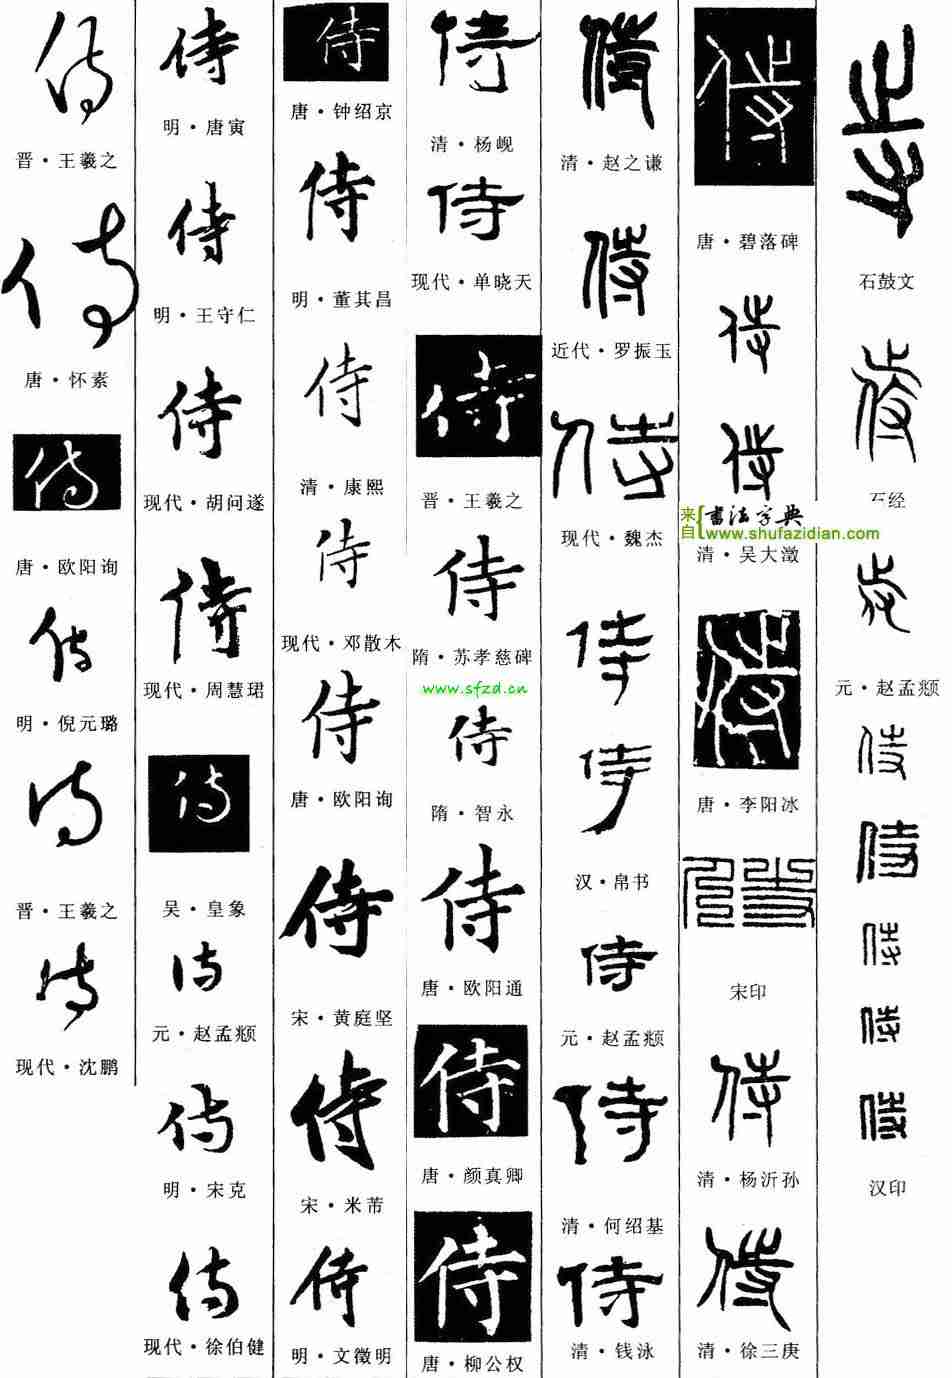 侍
晋·王羲之
侍
唐·怀素
侍
唐·欧阳询
侍
明·倪元璐
侍
晋·王羲之
侍
现代·沈鹏
侍
明·唐寅
侍
明·王守仁
侍
现代·胡问遂
侍
现代·周慧珺
侍
吴·皇象
侍
元·赵孟頫
侍
明·宋克
侍
现代·徐伯健
侍
唐·钟绍京
侍
明·董其昌
侍
清·康熙
侍
现代·邓散木
侍
唐·欧阳询
侍
宋·黄庭坚
侍
宋·米芾
侍
明·文徵明
侍
清·杨岘
侍
现代·单晓天
侍
晋·王羲之
侍
隋·苏孝慈碑
www.sfzd.cn
侍
隋·智永
侍
唐·欧阳通
侍
唐·颜真卿
侍
唐·柳公权
侍
清·赵之谦
侍
近代·罗振玉
侍
现代·魏杰
侍
侍
汉·帛书
侍
元·赵孟頫
侍
清·何绍基
侍
清·钱泳
侍
唐·碧落碑
侍
侍
来自 书法字典
www.shufazidian.com
清·吴大澂
侍
唐·李阳冰
侍
宋印
侍
清·杨沂孙
侍
清·徐三庚
石鼓文
侍
石经
侍
元·赵孟頫
侍
侍
侍
侍
侍
汉印